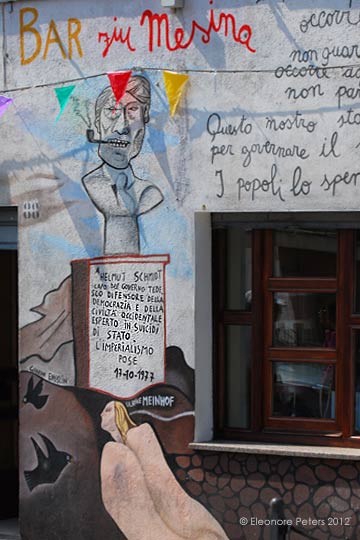 BAR ziu Mesina
occorre
non guar
occorre
non par
Questo mostro sta
per governare il
I popoli lo spen
HELMUT SCHMIDT
CAPO DEL GOVERNO TEDE
SCO DIFENSORE DELLA
DEMOCRAZIA E DELLA
CIVILTÀ OCCIDENTALE
ESPERTO IN SUICIDI
DI STATO
L'IMPERIALISMO
POSE
17-10-1977
MEINHOF
© Eleonore Peters 2012